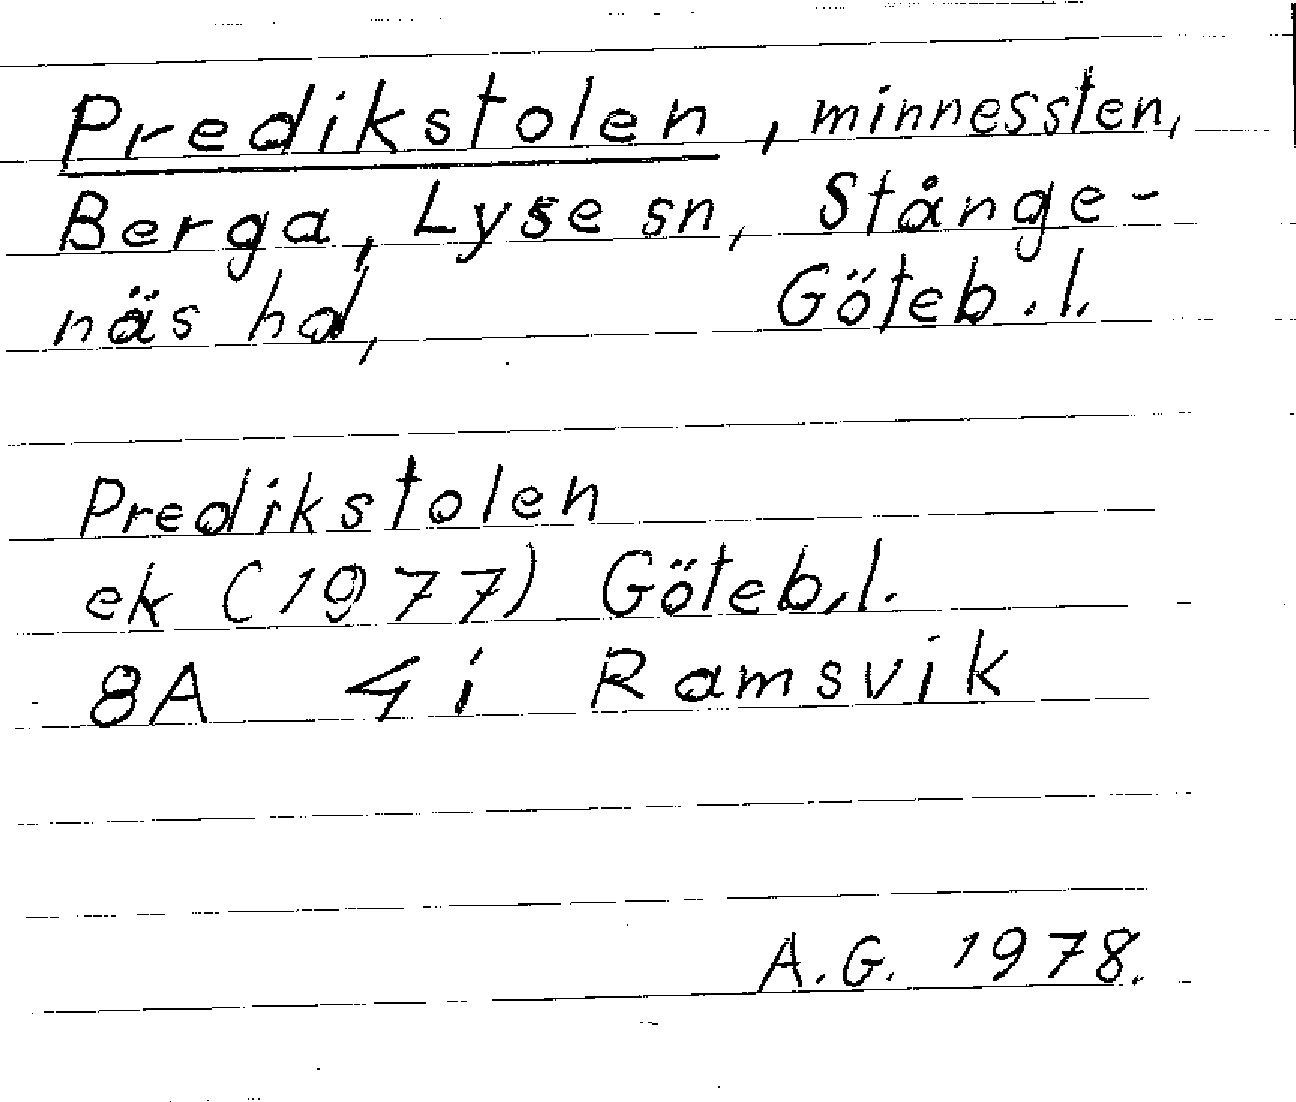 Predikstolen, minnessten,
Berga, Lyse sn, Stånge-
näs hd, Göteb.l.
Predikstolen
ek (1977) Göteb.l.
8A 4i Ramsvik
A.G. 1978.